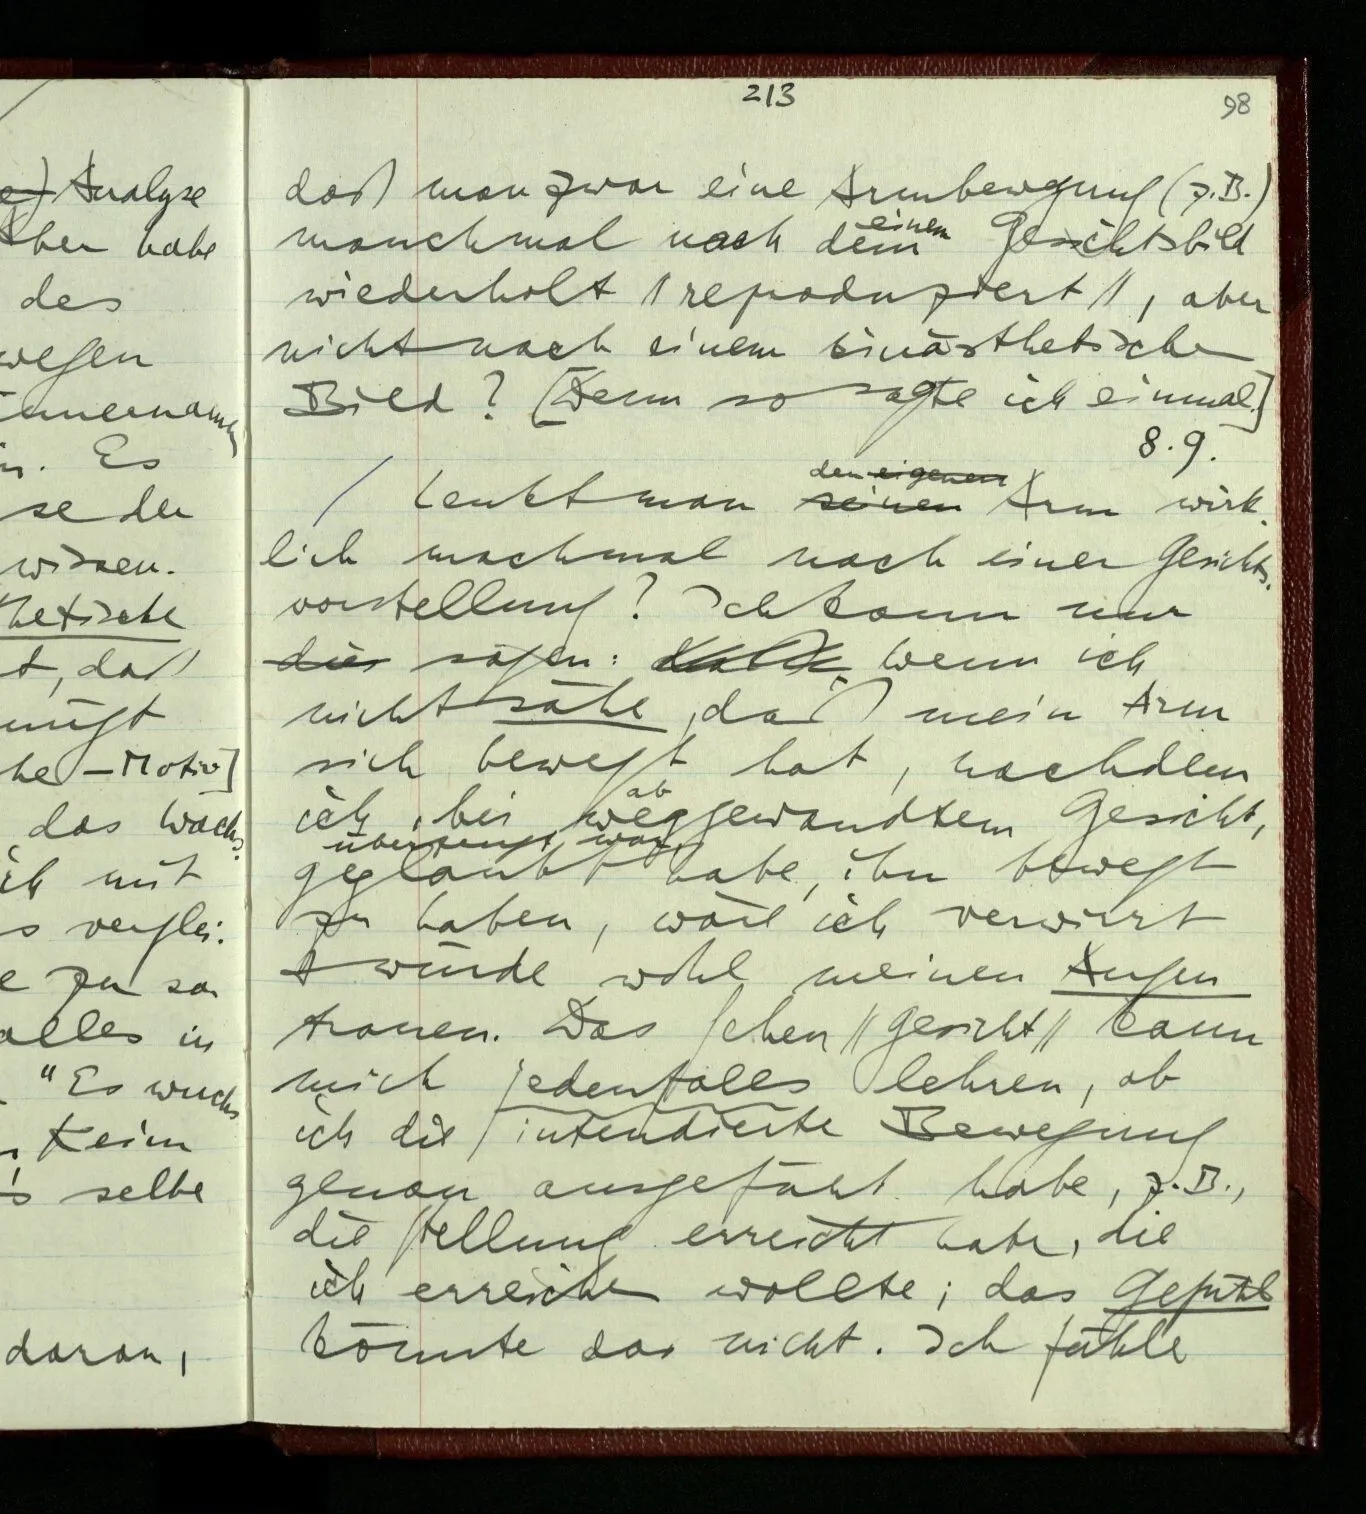 213
98
Analyse
Aber habe
des
wegen
in. Es
se der
wissen.
thetische
t, daß
he – Motiv]
das wachs
ich mit
s verglei.
e zu sa
alles in
"Es wuchs
Keim
selbe
daran,
daß man zwar eine Armbewegung (z.B.)
manchmal nach dem einem Gesichtsbild
wiederholt // reproduziert //, aber
nicht nach einem kinästhetischen
Bild? [Denn so sagte ich einmal.]
8.9.
/ Lenkt man seinen den eigenen Arm wirk-
lich machmal nach einer Gesichts-
vorstellung? Ich kann nur
dies sagen: wenn ich
nicht sähe, daß mein Arm
sich bewegt hat, nachdem
ich, bei weggewandtem ab Gesicht,
geglaubt habe überzeugt war, ihn bewegt
zu haben, wäre ich verwirrt
& würde wohl meinen Augen
trauen. Das Sehen // Gesicht // kann
mich jedenfalls lehren, ob
ich die intendierte Bewegung
genau ausgeführt habe, z.B.,
die Stellung erreicht habe, die
ich erreichen wollte; das Gefühl
könnte das nicht. Ich fühle